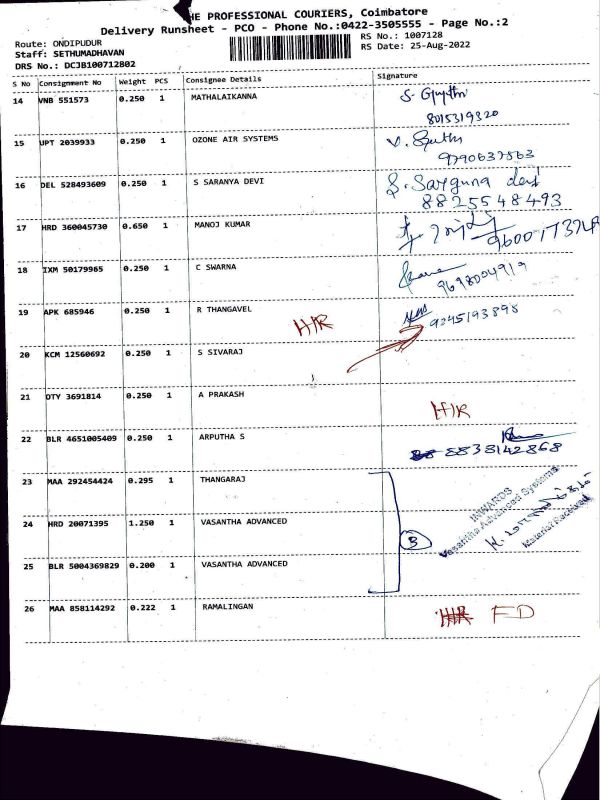 HE PROFESSIONAL COURIERS, Coimbatore
Delivery Runsheet - PCO - Phone No.:0422-3505555 - Page No.:2
Route: ONDIPUDUR
RS No.: 1007128
Staff: SETHUMADHAVAN
RS Date: 25-Aug-2022
DRS No.: DCJB100712802
S No Consignment No Weight PCS Consignee Details Signature
14 VNB 551573 0.250 1 MATHALAIKANNA
8015319320
15 UPT 2039933 0.250 1 OZONE AIR SYSTEMS
9790637563
16 DEL 528493609 0.250 1 S SARANYA DEVI S. Sarguna devi
8825548493
17 HRD 360045730 0.650 1 MANOJ KUMAR
18 IXM 50179965 0.250 1 C SWARNA
9698004919
19 APK 685946 0.250 1 R THANGAVEL
9245193898
H/R
20 KCM 12560692 0.250 1 S SIVARAJ
21 OTY 3691814 0.250 1 A PRAKASH
H/R
22 BLR 4651005409 0.250 1 ARPUTHA S
8838142868
23 MAA 292454424 0.295 1 THANGARAJ
24 HRD 20071395 1.250 1 VASANTHA ADVANCED
3
INWARDS
Vasantha Advanced Systems
Material Received
25 BLR 5004369829 0.200 1 VASANTHA ADVANCED
26 MAA 858114292 0.222 1 RAMALINGAN
FD